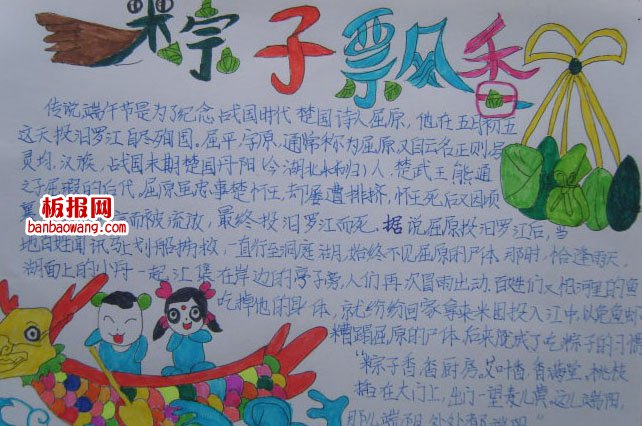 粽子飘香
传说端午节是为了纪念战国时代楚国诗人屈原,他在五月初五
这天投汨罗江自尽殉国。屈平,字原,通常称为屈原,又自云名正则,号
灵均,汉族,战国末期楚国丹阳(今湖北秭归)人,楚武王熊通
之子屈瑕的后代。屈原虽忠事楚怀王,却屡遭排挤,怀王死后又因顷
而被流放,最终投汨罗江而死。据说屈原投汨罗江后,当
地百姓闻讯马上划船捞救,一直行至洞庭湖,始终不见屈原的尸体。那时,恰逢雨天,
湖面上的小舟一起汇集在岸边的亭子旁,人们再次冒雨出动,百姓们又怕河里的鱼
吃掉他的身体,就纷纷回家拿来米团投入江中,以免鱼虾
糟蹋屈原的尸体,后来就成了吃粽子的习惯
"粽子香,香厨房。艾叶香,香满堂。桃枝
插在大门上,出门一望麦儿黄。这儿端阳,
那儿端阳,处处都端阳。"
板报网
banbaowang.com